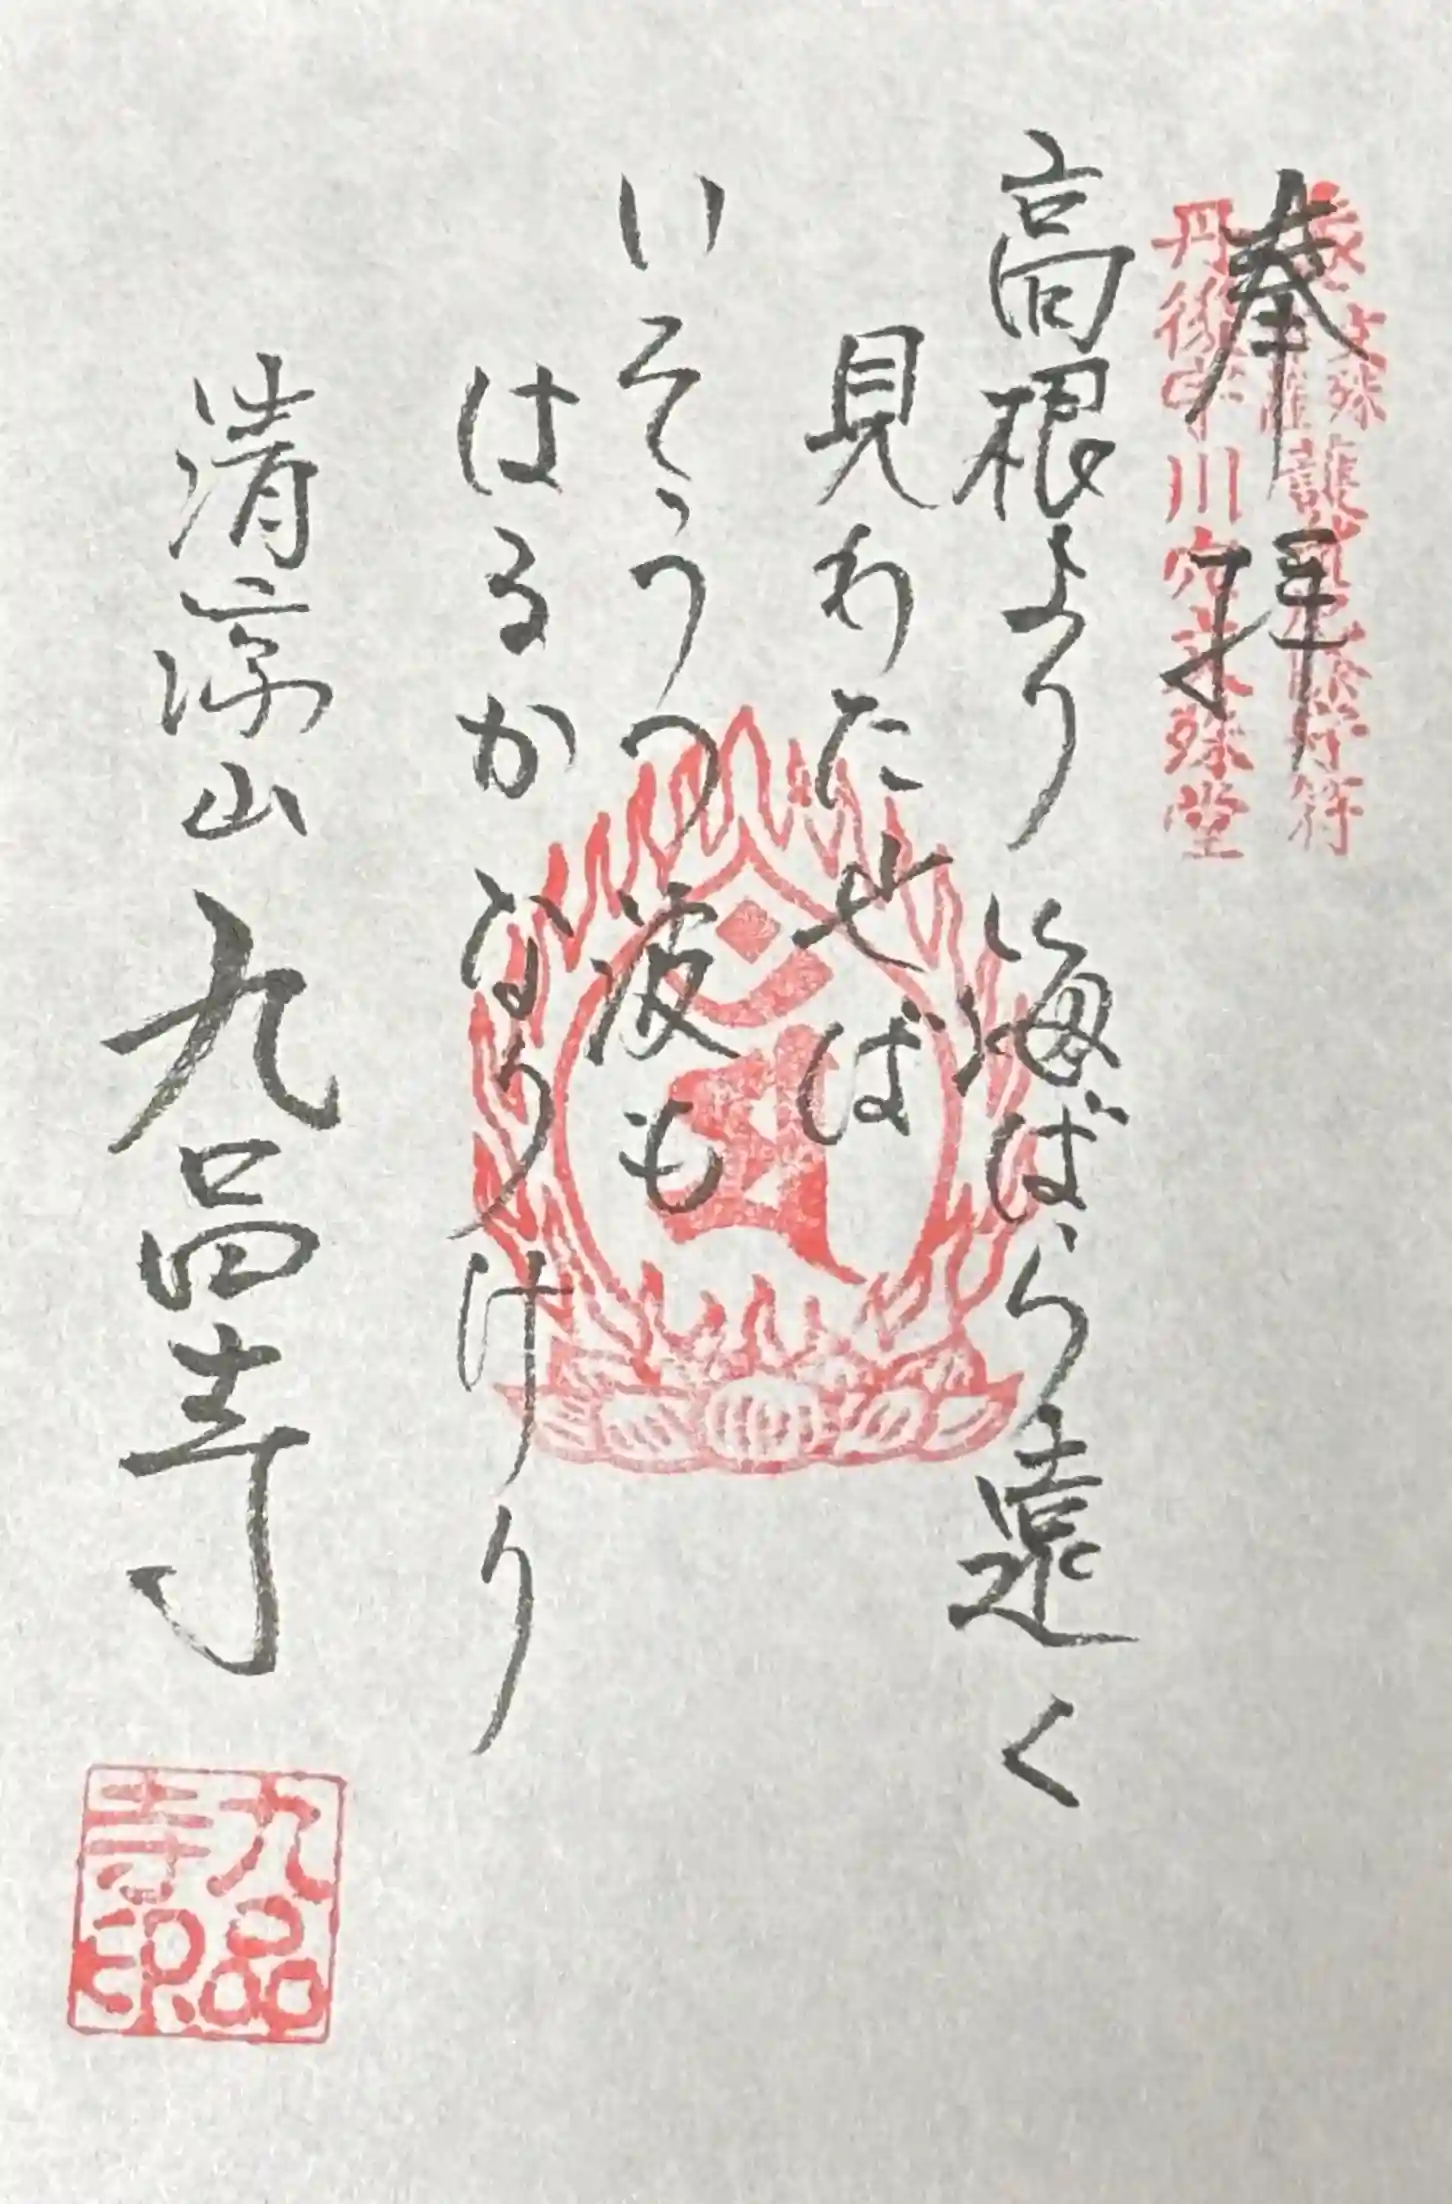 奉拝
丹後宇川穴文殊堂
高根より海ばら遠く
見わたせば
いそうつ波も
はるかなりけり
清凉山 九品寺
九品寺印